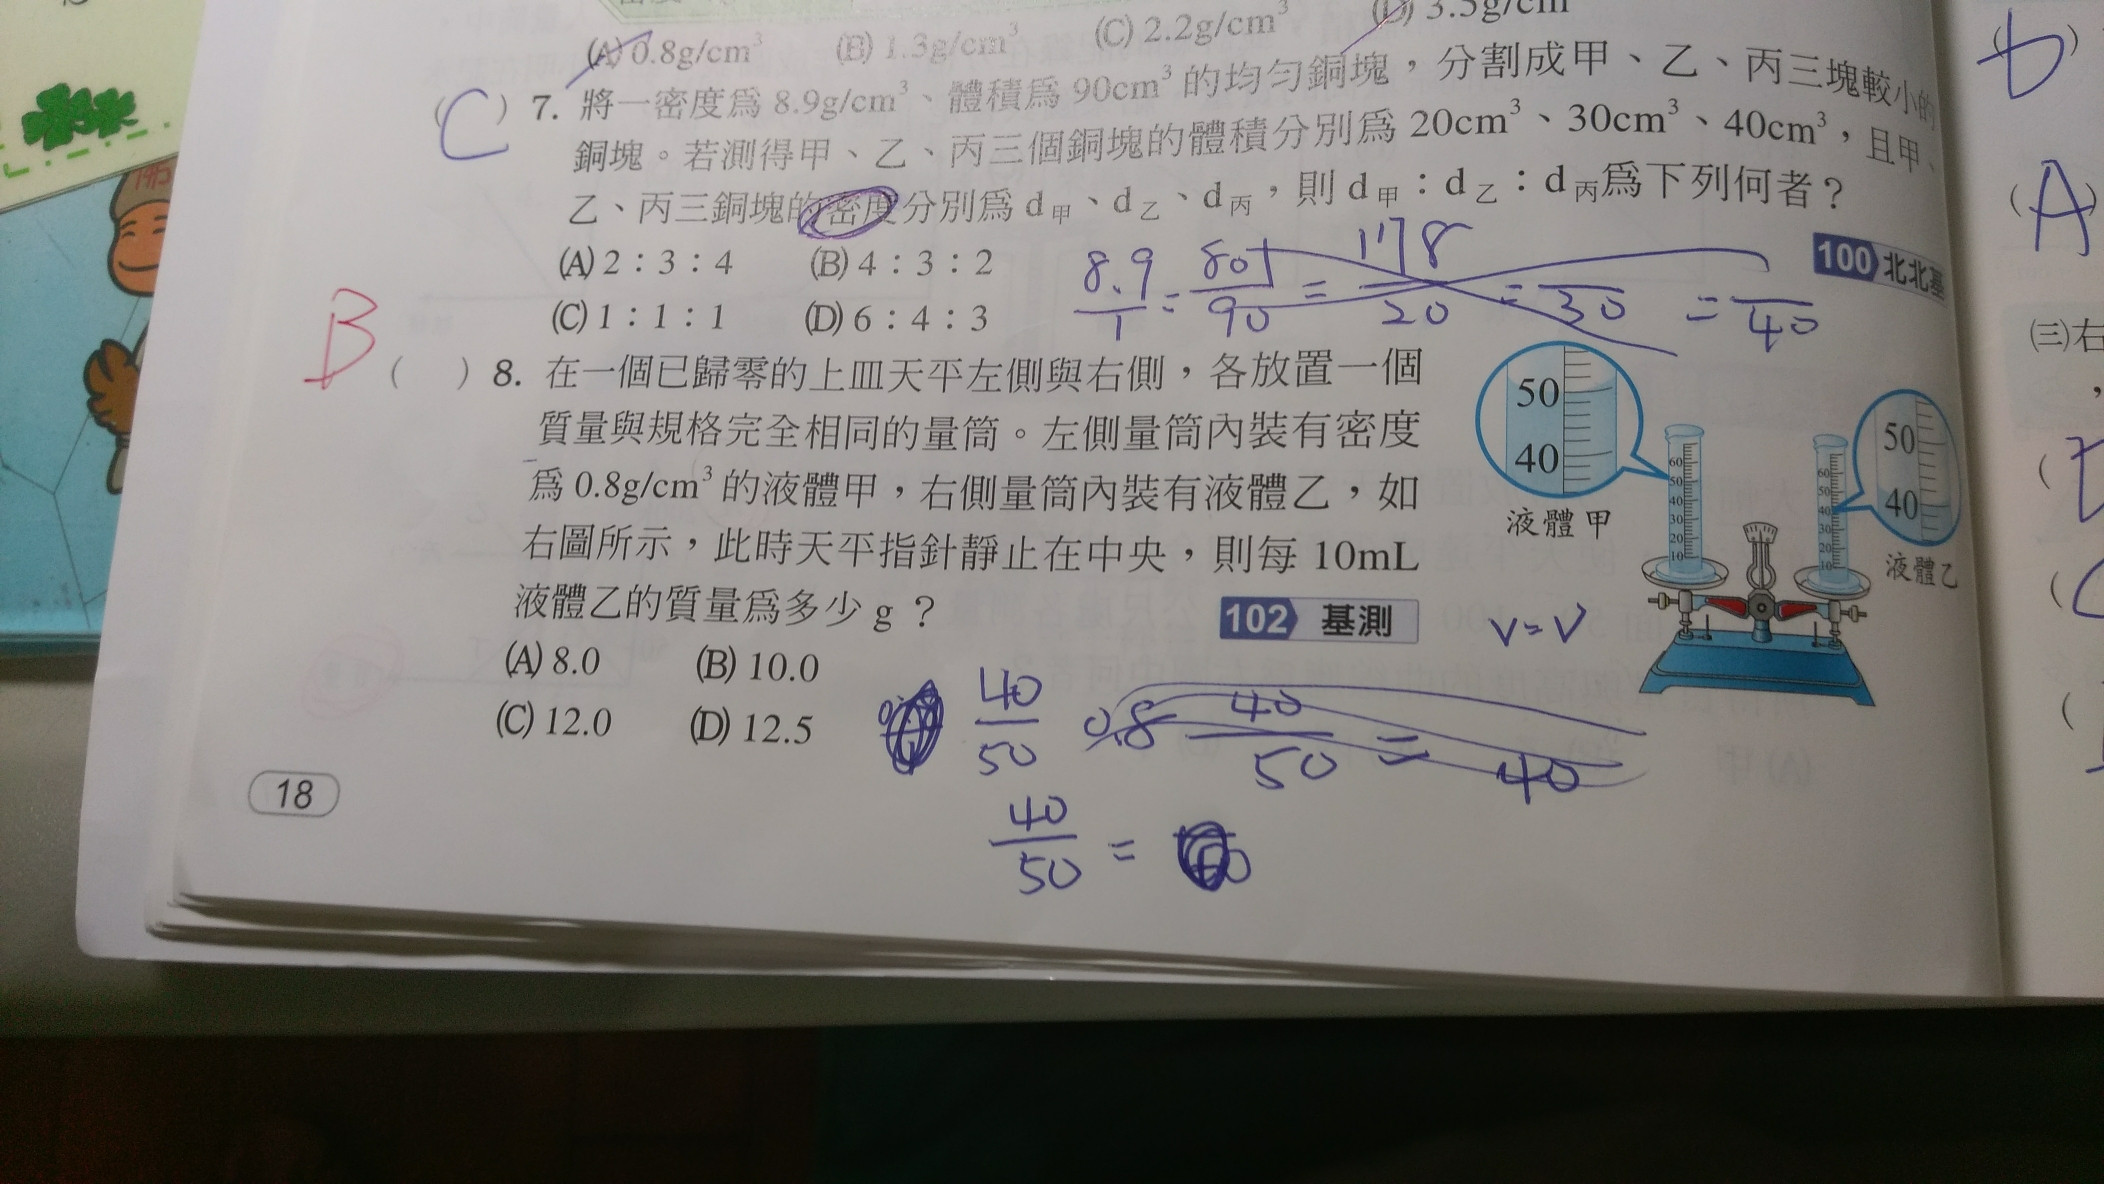 (A) 0.8g/cm³ (B) 1.3g/cm³ (C) 2.2g/cm³ (D) 3.5g/cm
( C ) 7. 將一密度為 8.9g/cm³、體積為 90cm³ 的均勻銅塊，分割成甲、乙、丙三塊較小的
銅塊。若測得甲、乙、丙三個銅塊的體積分別為 20cm³、30cm³、40cm³，且甲、
乙、丙三銅塊的密度分別為 d甲、d乙、d丙，則 d甲：d乙：d丙為下列何者？
100 北北基
(A) 2：3：4 (B) 4：3：2
(C) 1：1：1 (D) 6：4：3
8.9/1 = 801/90 = 178/20 = /30 = /40
B
( ) 8. 在一個已歸零的上皿天平左側與右側，各放置一個
質量與規格完全相同的量筒。左側量筒內裝有密度
為 0.8g/cm³ 的液體甲，右側量筒內裝有液體乙，如
右圖所示，此時天平指針靜止在中央，則每 10mL
液體乙的質量為多少 g？
102 基測
(A) 8.0 (B) 10.0
(C) 12.0 (D) 12.5
50
40
液體甲
60
50
40
30
20
10
60
50
40
30
20
10
50
40
液體乙
V=V
40/50 0.8 40/50 = 40
40/50 =
18
b
A
(三)右